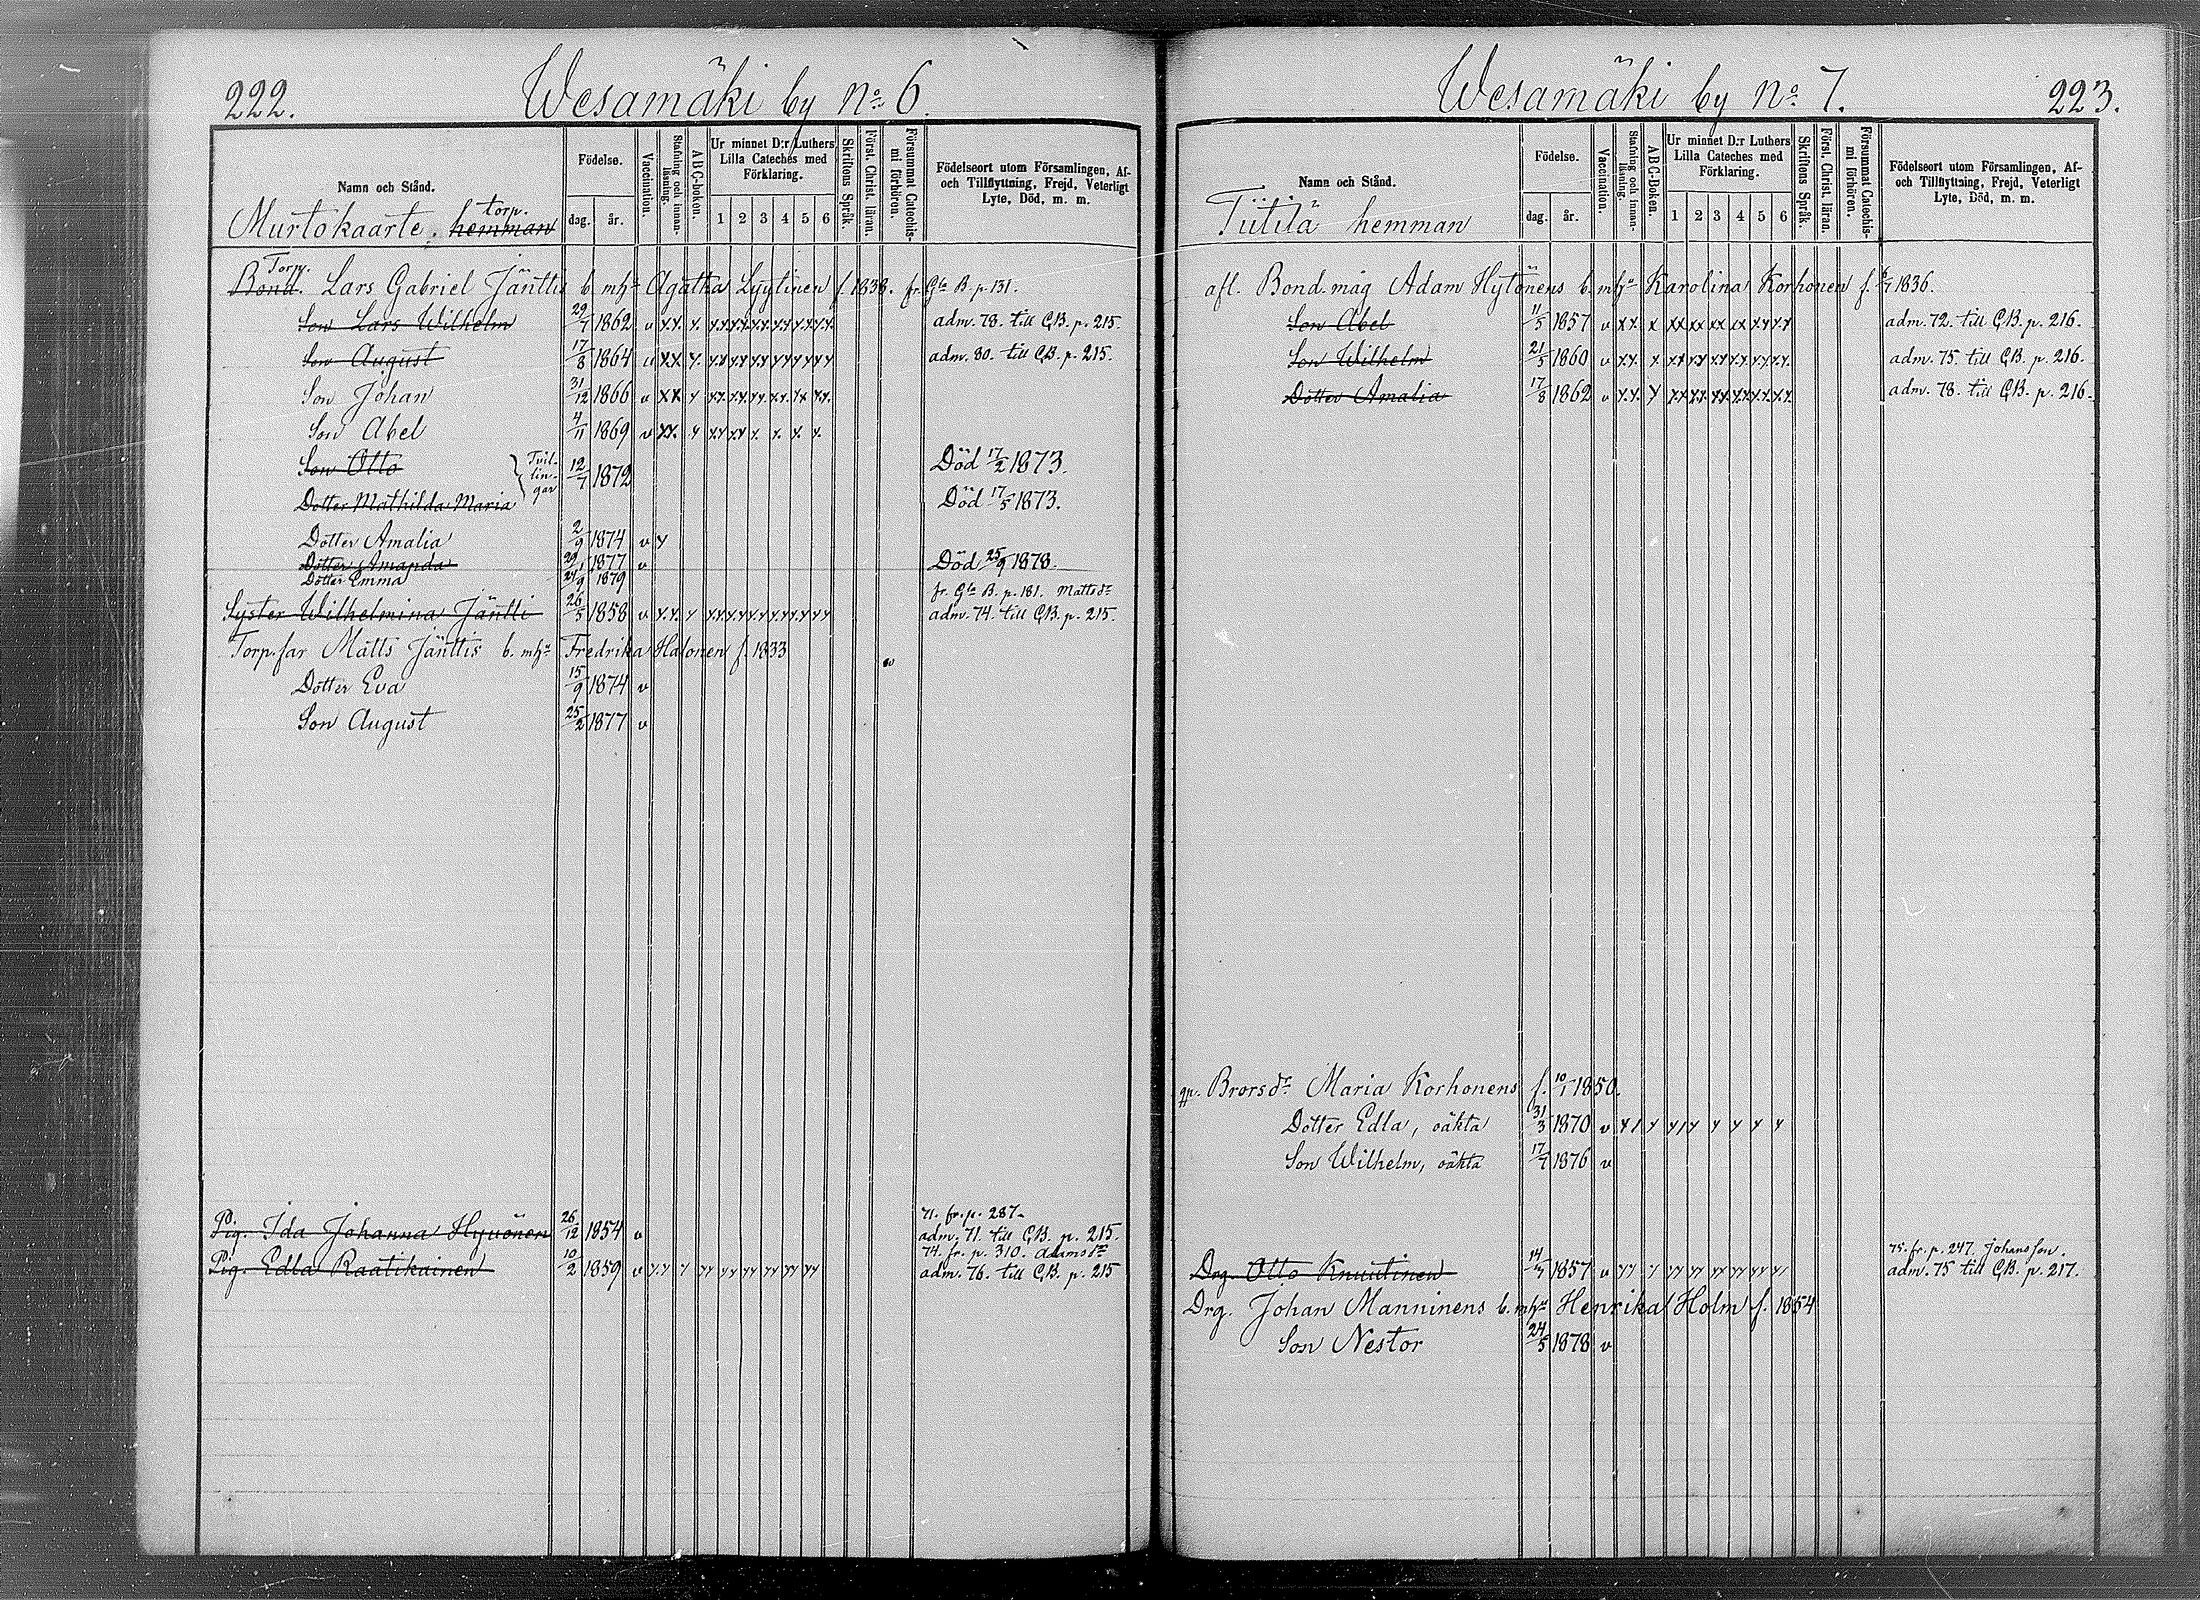 222.
Wesamäki by No 6.
Namn och Stånd.
Födelse.
dag.
år.
Vaccination.
Stafning och innanläsning.
A B C-boken.
Ur minnet D:r Luthers Lilla Cateches med Förklaring.
1 2 3 4 5 6
Skriftens Språk.
Först. Christ. läran.
Försummat Catechismi förhören.
Födelseort utom Församlingen, Af- och Tillflyttning, Frejd, Veterligt Lyte, Död, m. m.
Murtokaarte, hemman torp.
Torp.
Bond. Lars Gabriel Jäntti's b. mhu Agatha Lyytinen f. 1838. fr. Gla B. p. 131.
Son Lars Wilhelm 29/7 1862 v xx x. xx xx xx xx xx xx adm. 78. till C.B. p. 215.
Son August 17/8 1864 v xx x. xx xx xx xx xx xx adm. 80. till C.B. p. 215.
Son Johan 31/12 1866 v xx x xx xx xx xx xx xx
Son Abel 4/11 1869 v xx. x xx xx x. x. x. x.
Son Otto } Tvillingar 12/7 1872 Död 17/2 1873.
Dotter Mathilda Maria Död 17/5 1873.
Dotter Amalia 2/9 1874 v x
Dotter Amanda 29/1 1877 v Död 25/9 1878.
Dotter Emma 24/9 1879
fr. Gla B. p. 181. Mattsdr
Syster Wilhelmina Jäntti 26/5 1858 v x.x. x xx xx xx xx xx xx adm. 74. till C.B. p. 215.
Torp.far Matts Jänttis b. mhu Fredrika Halonen f. 1833
Dotter Eva 15/9 1874 v
Son August 25/2 1877 v
71. fr. p. 287.
Pig. Ida Johanna Hyvönen 26/12 1854 v adm. 71. till C.B. p. 215.
74. fr. p. 310. Adamsdr
Pig. Edla Raatikainen 10/2 1859 v x.x x xx xx xx xx xx xx adm. 76. till C.B. p. 215
Wesamäki by No 7.
223.
Namn och Stånd.
Födelse.
dag.
år.
Vaccination.
Stafning och innanläsning.
A B C-Boken.
Ur minnet D:r Luthers Lilla Cateches med Förklaring.
1 2 3 4 5 6
Skriftens Språk.
Först. Christ. läran.
Försummat Catechismi förhören.
Födelseort utom Församlingen, Af- och Tillflyttning, Frejd, Veterligt Lyte, Död, m. m.
Tiitilä hemman
afl. Bond. måg Adam Hytönens b. mhu Karolina Korhonen f. 1836.
Son Abel 11/5 1857 v xx. x xx xx xx xx xx xx adm. 72. till C.B. p. 216.
Son Wilhelm 21/5 1860 v x.x. x xx xx xx xx xx xx adm. 75. till C.B. p. 216.
Dotter Amalia 17/8 1862 v x.x. x xx xx xx xx xx xx adm. 78. till C.B. p. 216.
Brorsdr Maria Korhonens f. 10/1 1850.
Dotter Edla, oäkta 31/3 1870 v x/ x x/x x x x x
Son Wilhelm, oäkta 17/7 1876 v
75. fr. p. 247. Johansson.
Drg. Otto Knuutinen 14/7 1857 v xx x xx xx xx xx xx xx adm. 75 till C.B. p. 217.
Drg. Johan Manninens b. mhu Henrika Holm f. 1854
Son Nestor 24/5 1878 v